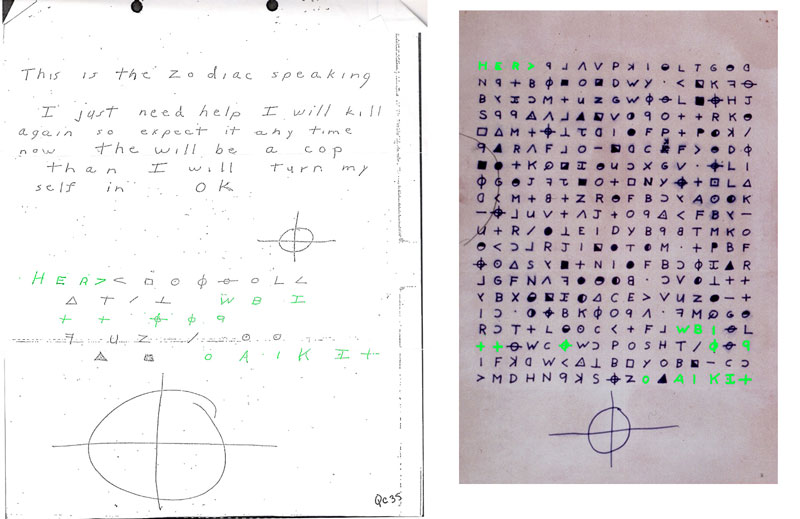 This is the Zodiac speaking
I just need help I will kill
again so expect it any time
now the will be a cop
than I will turn my
self in OK
H E R > < □ ⊙ ϕ ⊖ O L ∠
△ T / ⊥ W B I
+ + ⌖ ϕ ϕ 9
ꟻ U Z – / ⊙ ⊙
▲ O A I K I +
QC35
H E R > ꟼ ⅃ Λ V P K I L T G ᗡ
N ꟼ + B ϕ ■ O D W Y · < K ꟻ ⊖
B Y C M + U Z G W ϕ L ■ ⌖ H J
S ꟼ ꟼ △ Λ ▲ V ꟼ O + + R K
□ △ M + ⌖ ⊥ I F P + P K /
ꟼ ▲ R Λ F O – C F > ϕ
■ ● + K I U X G V · ⌖ L I
ϕ G J ■ O + □ N Y ⌖ + L △
< M + B + Z R F B Y A O K
– ⌖ U V + Λ J + O ꟼ △ < F B Y –
U + R / ⊥ E I D Y B ꟼ B T M K O
< R J I T M · + P B F
⌖ △ S Y ■ + N I F B ϕ I ▲ R
G F N Λ B · V ⊥ + +
Y B X I △ C E > V U Z – +
I · ϕ B K ϕ O ꟼ Λ · M G
R T + L C < + F W B I ⊖ L
+ + ⊖ W C ϕ W P O S H T / ϕ ⊖ ꟼ
I F K W < △ ⊥ B □ Y O B – C
> M D H N ꟼ K S ⌖ Z O ▲ A I K I +